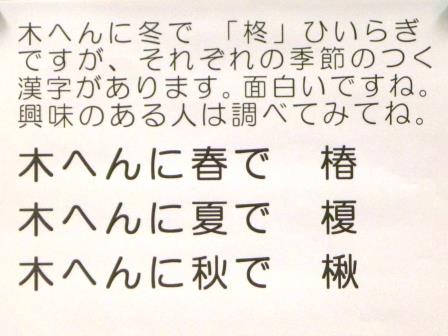 木へんに冬で 「柊」ひいらぎ
ですが、それぞれの季節のつく
漢字があります。面白いですね。
興味のある人は調べてみてね。
木へんに春で　椿
木へんに夏で　榎
木へんに秋で　楸